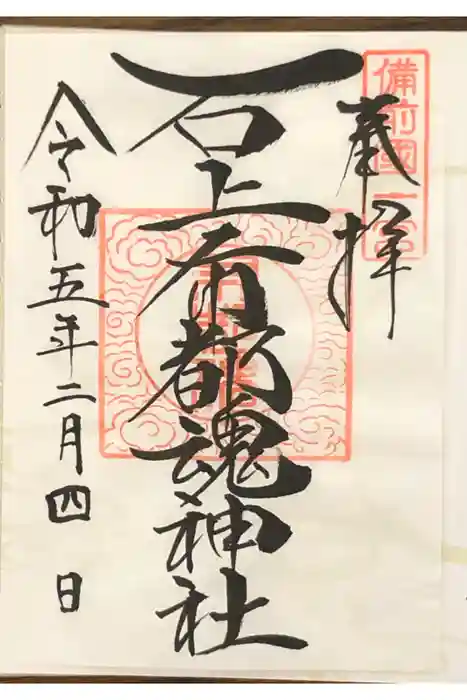 備前國一宮
奉拝
石上布都魂神社
令和五年二月四日